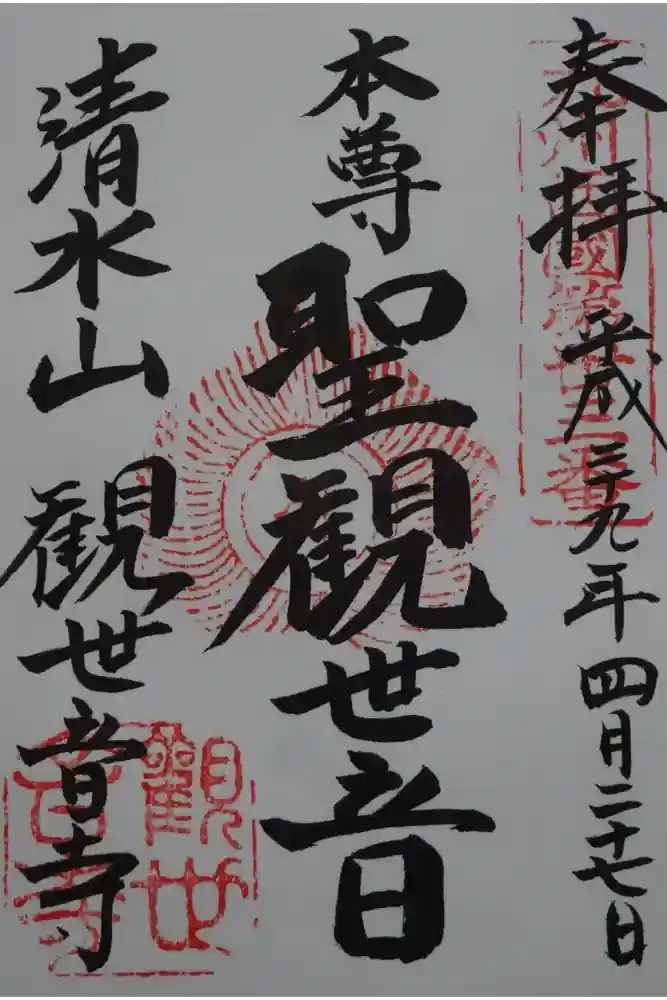 奉拝 平成二十九年四月二十七日
本尊 聖観世音
清水山 観世音寺
觀世音寺